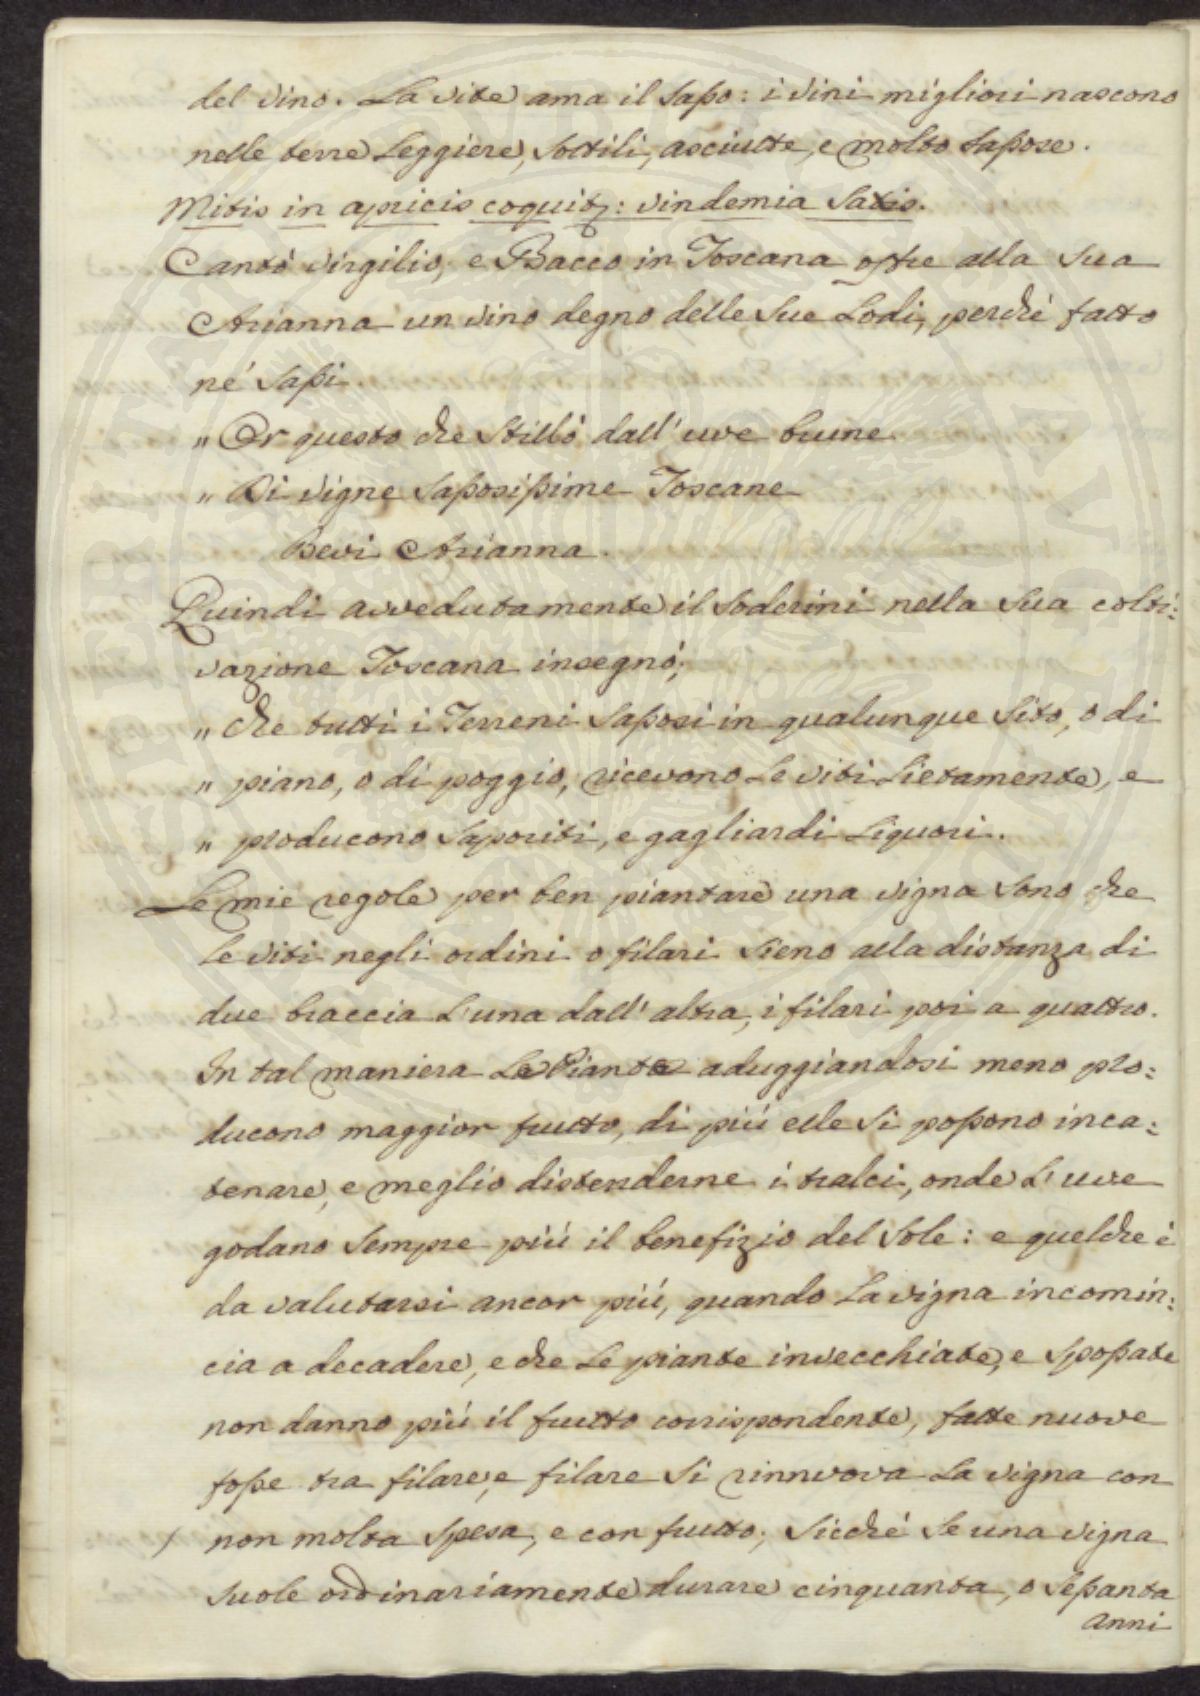 del vino. La vite ama il sasso: i vini migliori nascono
nelle terre Leggiere, sottili, asciutte, e molto sassose.
Mitis in apricis coquitʒ: vindemia saxis.
Cantò Virgilio; e Bacco in Toscana offre alla sua
Arianna un vino degno delle sue Lodi, perché fatto
né sassi.
„ Or questo che stillò dall' uve brune
„ Di vigne sassosissime Toscane
Bevi Arianna.
Quindi avvedutamente il Soderini nella sua colti:
vazione Toscana insegnò;
„ che tutti i Terreni sassosi in qualunque sito, o di
„ piano, o di poggio, ricevono Le viti Lietamente, e
„ producono saporiti, e gagliardi Liquori.
Le mie regole per ben piantare una vigna sono che
Le viti negli ordini o filari sieno alla distanza di
due braccia L'una dall' altra, i filari poi a quattro.
In tal maniera Le Piante aduggiandosi meno pro:
ducono maggior frutto, di più elle si possono inca:
tenare, e meglio distenderne i tralci, onde L'uve
godano sempre più il benefizio del sole: e quelche è
da valutarsi ancor più, quando La vigna incomin:
cia a decadere, e che Le piante invecchiate, e spossate
non danno più il frutto corrispondente, fatte nuove
fosse tra filare, e filare si rinnuova La vigna con
/ non molta spesa, e con frutto; sicché se una vigna
suole ordinariamente durare cinquanta, o sessanta
anni